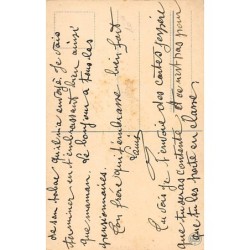 Tu vois je t'envoie des cartes j'espère
que tu seras contente et ce n'est pas pour
que tu les perde en classe
de son tabac qu'il m'a envoyé. Je vais
terminer en t'embrassant bien ainsi
que maman. Le bonjour à tous les
pensionnaires.
Ton frère qui t'embrasse bien fort
Louis